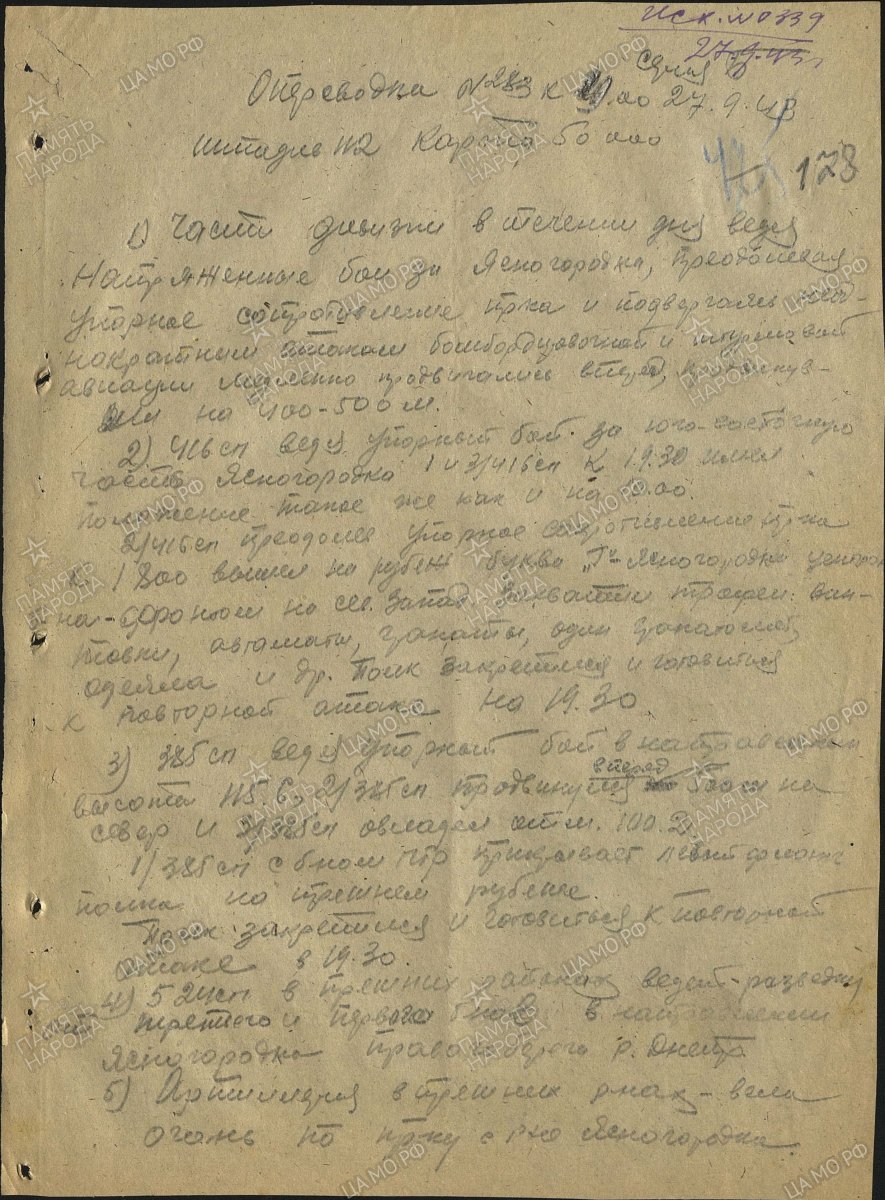 Исх. №0339
27.9.43г
Серия Б
Оперсводка №283 к .00 27.9.43
штадив 112 Карта 50 000
178
1) Части дивизии в течении дня ведя
Напряженные бои за Ясногородка, преодолевая
упорное сопротивление пр-ка и подвергаясь неод-
нократным атакам бомбардировочной и штурмовой
авиации медленно продвигались вперед, продвинув-
шись на 400-500 м.
2) 416сп ведя упорный бой за юго-восточную
часть Ясногородка 1 и 3/416сп к 19.30 имел
положение такое же как и на 10.00.
2/416сп преодолев упорное сопротивление пр-ка
к 1800 вышел на рубеж буква „Г“ Ясногородка
на-фронтом на сев. запад. Захватил трофеи: вин-
товки, автоматы, гранаты, один гранатомет,
одеяла и др. Полк закрепился и готовиться
к повторной атаке на 19.30
3) 385сп ведя упорный бой в направлении
высота 115.6, 2/385сп продвинулся вперед 500м на
север и 3/385сп овладел отм. 100.2
1/385сп с б-ном ПТР прикрывает левый фланг
полка на прежнем рубеже.
Полк закрепился и готовиться к повторной
атаке в 19.30.
4) 524сп в прежних районах ведет разведку
третьего и первого б-на в направлении
Ясногородка правого берега р. Днепр
5) Артиллерия в прежних р-нах – вела
огонь по пр-ку в р-не Ясногородка.
ПАМЯТЬ НАРОДА
ЦАМО.РФ